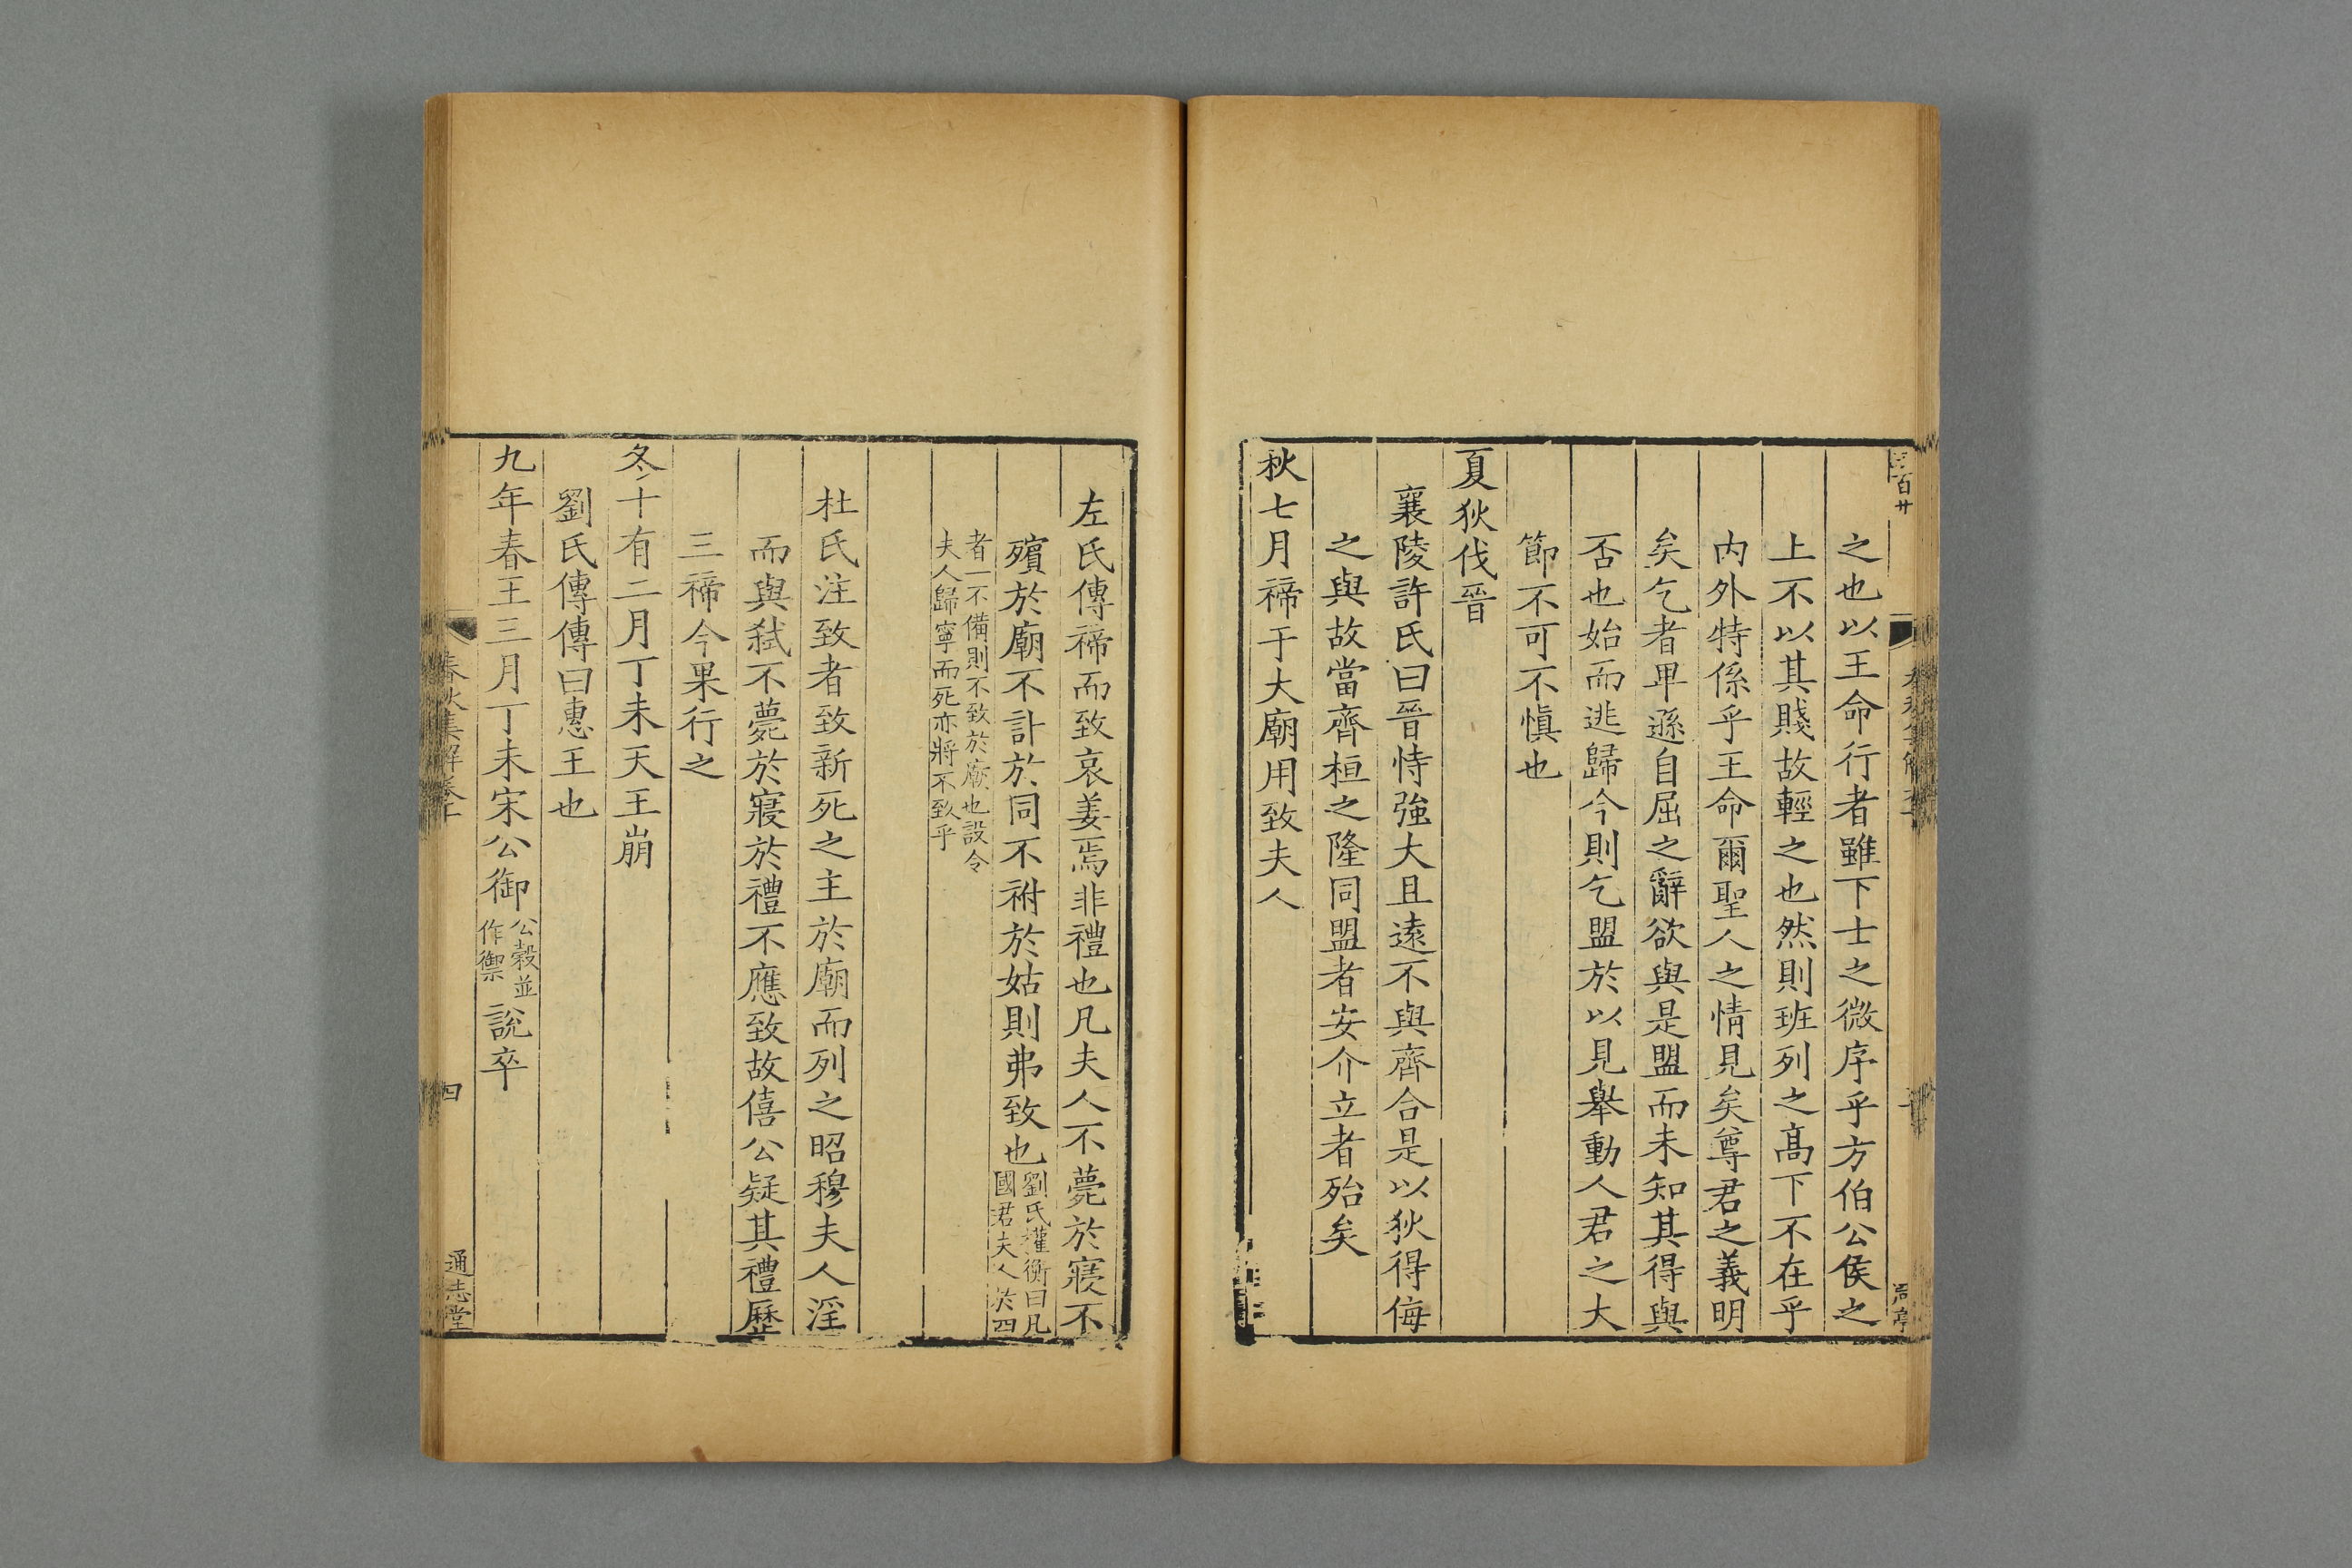 之也以王命行者雖下士之微序乎方伯公侯之
上不以其賤故輕之也然則班列之高下不在乎
内外特係乎王命爾聖人之情見矣尊君之義明
矣乞者卑遜自屈之辭欲與是盟而未知其得與
否也始而逃歸今則乞盟於以見舉動人君之大
節不可不慎也
夏狄伐晉
襄陵許氏曰晉恃強大且遠不與齊合是以狄得侮
之與故當齊桓之隆同盟者安介立者殆矣
秋七月禘于大廟用致夫人
左氏傳禘而致哀姜焉非禮也凡夫人不薨於寢不
殯於廟不計於同不祔於姑則弗致也劉氏權衡曰凡國君夫人於四
者一不備則不致於廟也設令夫人歸寧而死亦將不致乎
杜氏注致者致新死之主於廟而列之昭穆夫人淫
而與弑不薨於寢於禮不應致故僖公疑其禮歷
三禘今果行之
冬十有二月丁未天王崩
劉氏傳傳曰惠王也
九年春王三月丁未宋公御公穀並作禦說卒
春秋集解卷十
四
通志堂